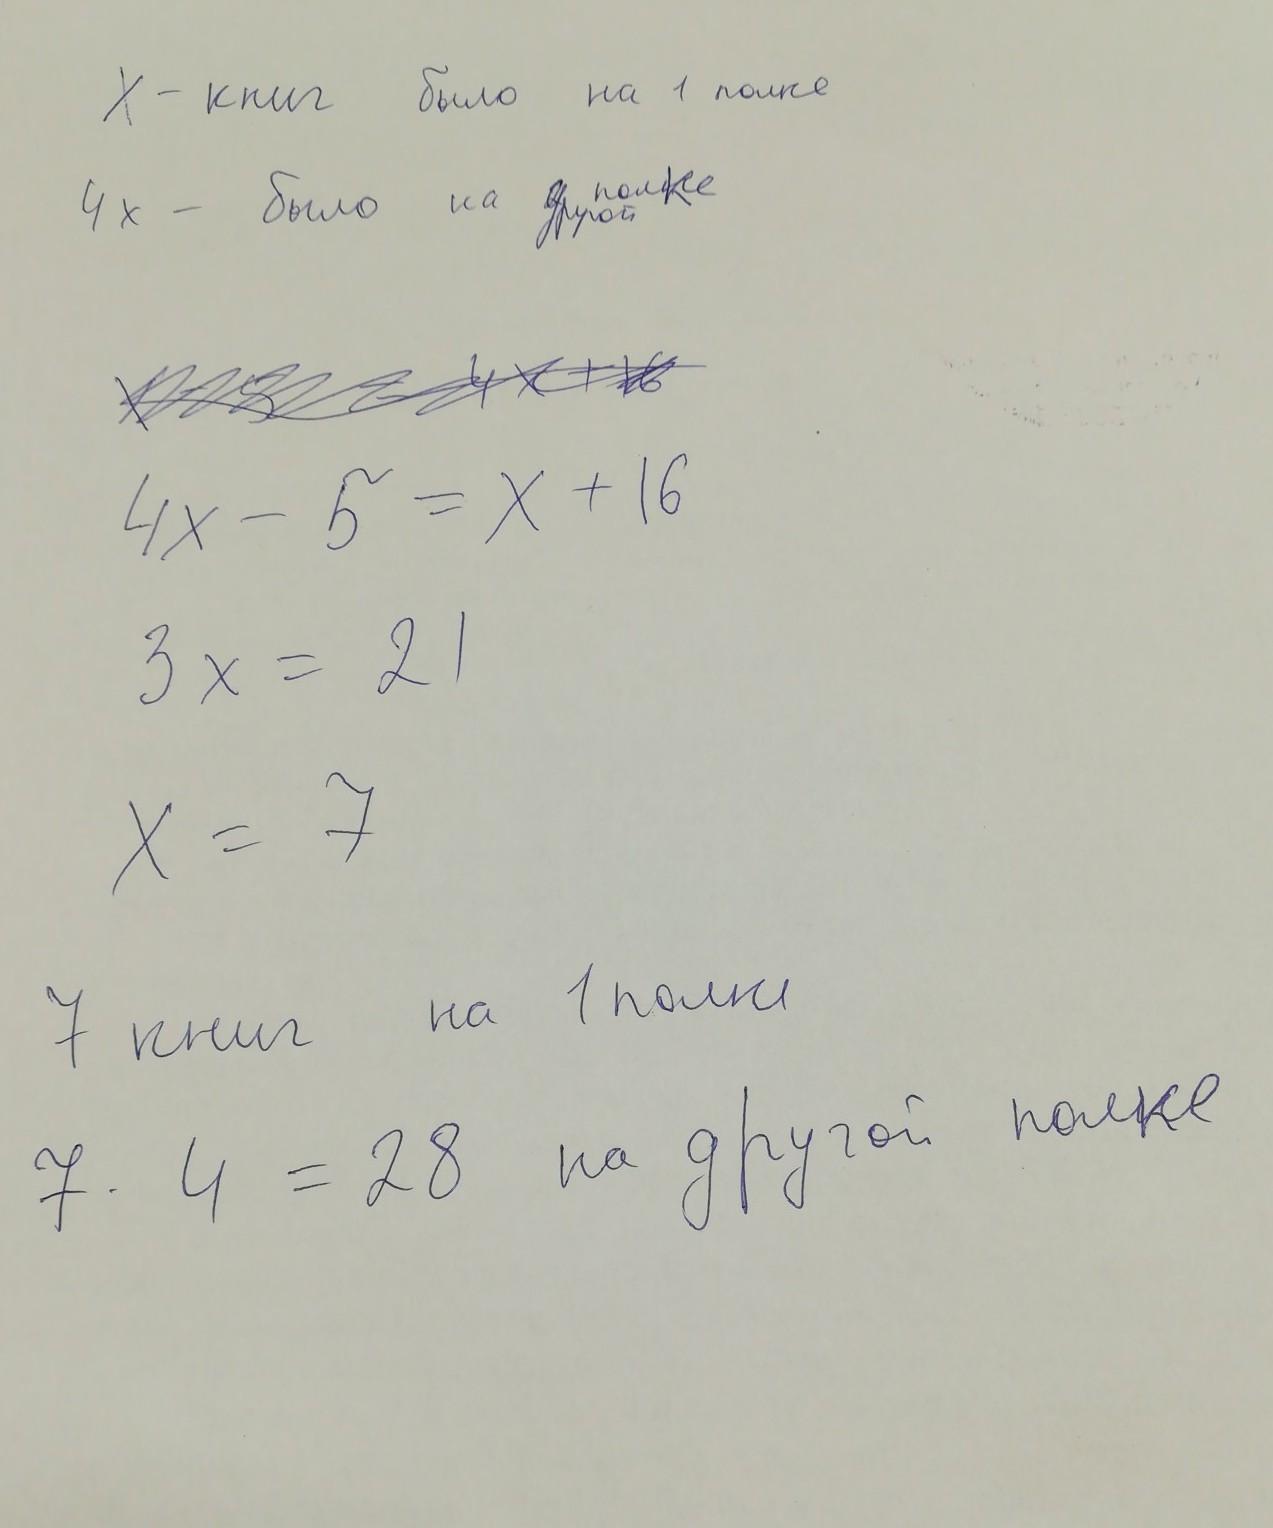 X - книг было на 1 полке
4x - было на другой полке
4x - 5 = x + 16
3x = 21
X = 7
7 книг на 1 полке
7 · 4 = 28 на другой полке